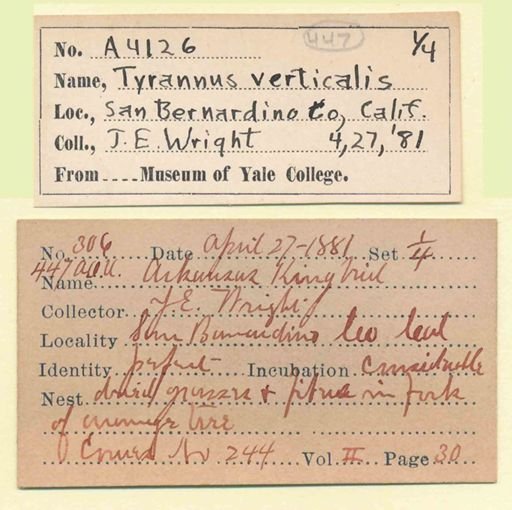 447
No. A4126 1/4
Name, Tyrannus verticalis
Loc., San Bernardino Co, Calif.
Coll., J. E Wright 4,27,'81
From .... Museum of Yale College.
No. 306 Date April 27-1881 Set 1/4
447 A.O.U.
Name Arkansas Kingbird
Collector J. E. Wright
Locality San Bernardino Co Cal
Identity perfect Incubation considerable
Nest dried grasses & fibres in fork
of orange tree
No 244 Vol. II Page 30